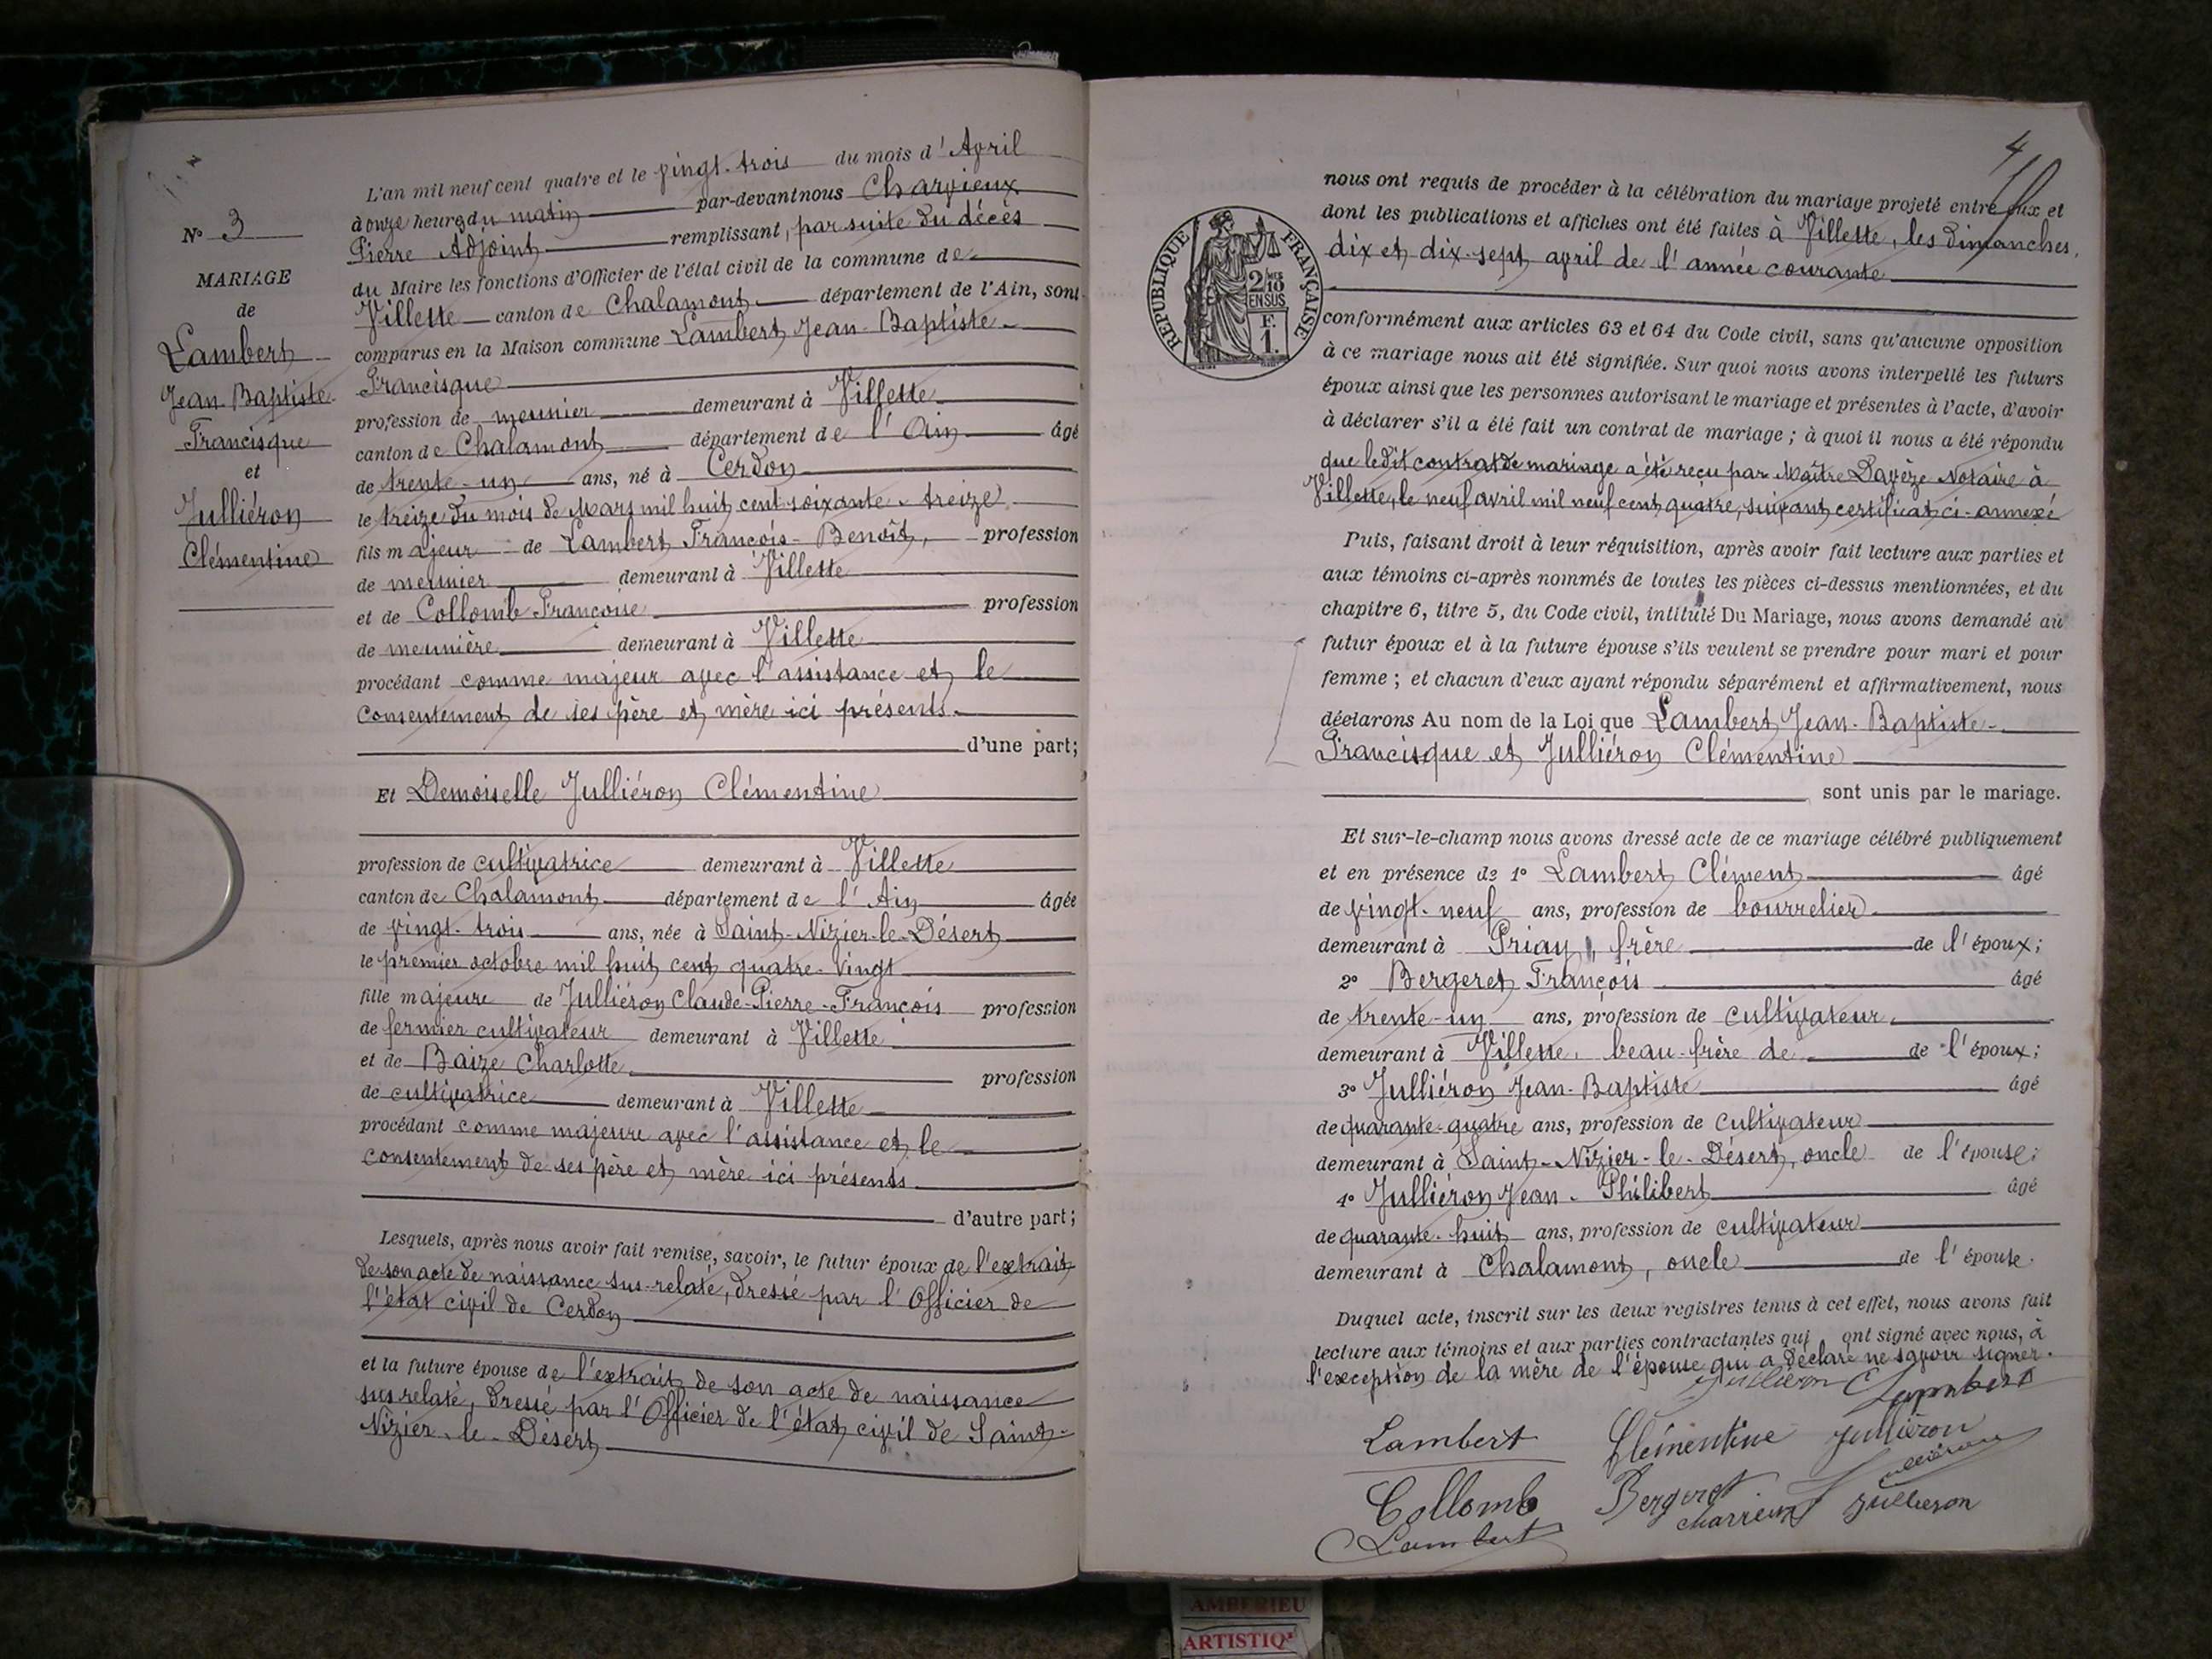 N° 3
MARIAGE
de
Lambert
Jean Baptiste
Francisque
et
Julliéron
Clémentine
L'an mil neuf cent quatre et le vingt-trois du mois d'Avril
à onze heures du matin par-devant nous Charvieux
Pierre Adjoint remplissant, par suite du décès
du Maire les fonctions d'Officier de l'état civil de la commune de
Villette canton de Chalamont département de l'Ain, sont
comparus en la Maison commune Lambert Jean-Baptiste-
Francisque
profession de meunier demeurant à Villette
canton de Chalamont département de l'Ain âgé
de trente-un ans, né à Cerdon
le treize du mois de Mars mil huit cent soixante-treize
fils majeur de Lambert François-Benoît, profession
de meunier demeurant à Villette
et de Collomb Françoise profession
de meunière demeurant à Villette
procédant comme majeur avec l'assistance et le
consentement de ses père et mère ici présents.
d'une part;
Et Demoiselle Julliéron Clémentine
profession de cultivatrice demeurant à Villette
canton de Chalamont département de l'Ain âgée
de vingt-trois ans, née à Saint-Nizier-le-Désert
le premier octobre mil huit cent quatre-vingt
fille majeure de Julliéron Claude-Pierre-François profession
de fermier cultivateur demeurant à Villette
et de Baize Charlotte profession
de cultivatrice demeurant à Villette
procédant comme majeure avec l'assistance et le
consentement de ses père et mère ici présents
d'autre part;
Lesquels, après nous avoir fait remise, savoir, le futur époux de l'extrait
de son acte de naissance sus-relaté, dressé par l'Officier de
l'état civil de Cerdon
et la future épouse de l'extrait de son acte de naissance
sus relaté, dressé par l'Officier de l'état civil de Saint-
Nizier-le-Désert
4
REPUBLIQUE FRANÇAISE
2/10 EN SUS
F. 1.
nous ont requis de procéder à la célébration du mariage projeté entre eux et
dont les publications et affiches ont été faites à Villette, les dimanches,
dix et dix-sept avril de l'année courante
conformément aux articles 63 et 64 du Code civil, sans qu'aucune opposition
à ce mariage nous ait été signifiée. Sur quoi nous avons interpellé les futurs
époux ainsi que les personnes autorisant le mariage et présentes à l'acte, d'avoir
à déclarer s'il a été fait un contrat de mariage ; à quoi il nous a été répondu
que ledit contrat de mariage a été reçu par Maître Davèze Notaire à
Villette, le neuf avril mil neuf cent quatre, suivant certificat ci-annexé
Puis, faisant droit à leur réquisition, après avoir fait lecture aux parties et
aux témoins ci-après nommés de toutes les pièces ci-dessus mentionnées, et du
chapitre 6, titre 5, du Code civil, intitulé Du Mariage, nous avons demandé au
futur époux et à la future épouse s'ils veulent se prendre pour mari et pour
femme ; et chacun d'eux ayant répondu séparément et affirmativement, nous
déclarons Au nom de la Loi que Lambert Jean-Baptiste-
Francisque et Julliéron Clémentine
sont unis par le mariage.
Et sur-le-champ nous avons dressé acte de ce mariage célébré publiquement
et en présence de 1° Lambert Clément âgé
de vingt-neuf ans, profession de bourrelier
demeurant à Priay, frère de l'époux;
2° Bergeret François âgé
de trente-un ans, profession de cultivateur.
demeurant à Villette, beau-frère de de l'époux;
3° Julliéron Jean-Baptiste âgé
de quarante-quatre ans, profession de cultivateur
demeurant à Saint-Nizier-le-Désert, oncle de l'épouse;
4° Julliéron Jean-Philibert âgé
de quarante-huit ans, profession de cultivateur
demeurant à Chalamont, oncle de l'épouse.
Duquel acte, inscrit sur les deux registres tenus à cet effet, nous avons fait
lecture aux témoins et aux parties contractantes qui ont signé avec nous, à
l'exception de la mère de l'épouse qui a déclaré ne savoir signer.
Julliéron C Lambert
Lambert Clémentine Julliéron
Julliéron
Collomb Bergeret Julliéron
Charvieux
Lambert
AMBERIEU
ARTISTIQ